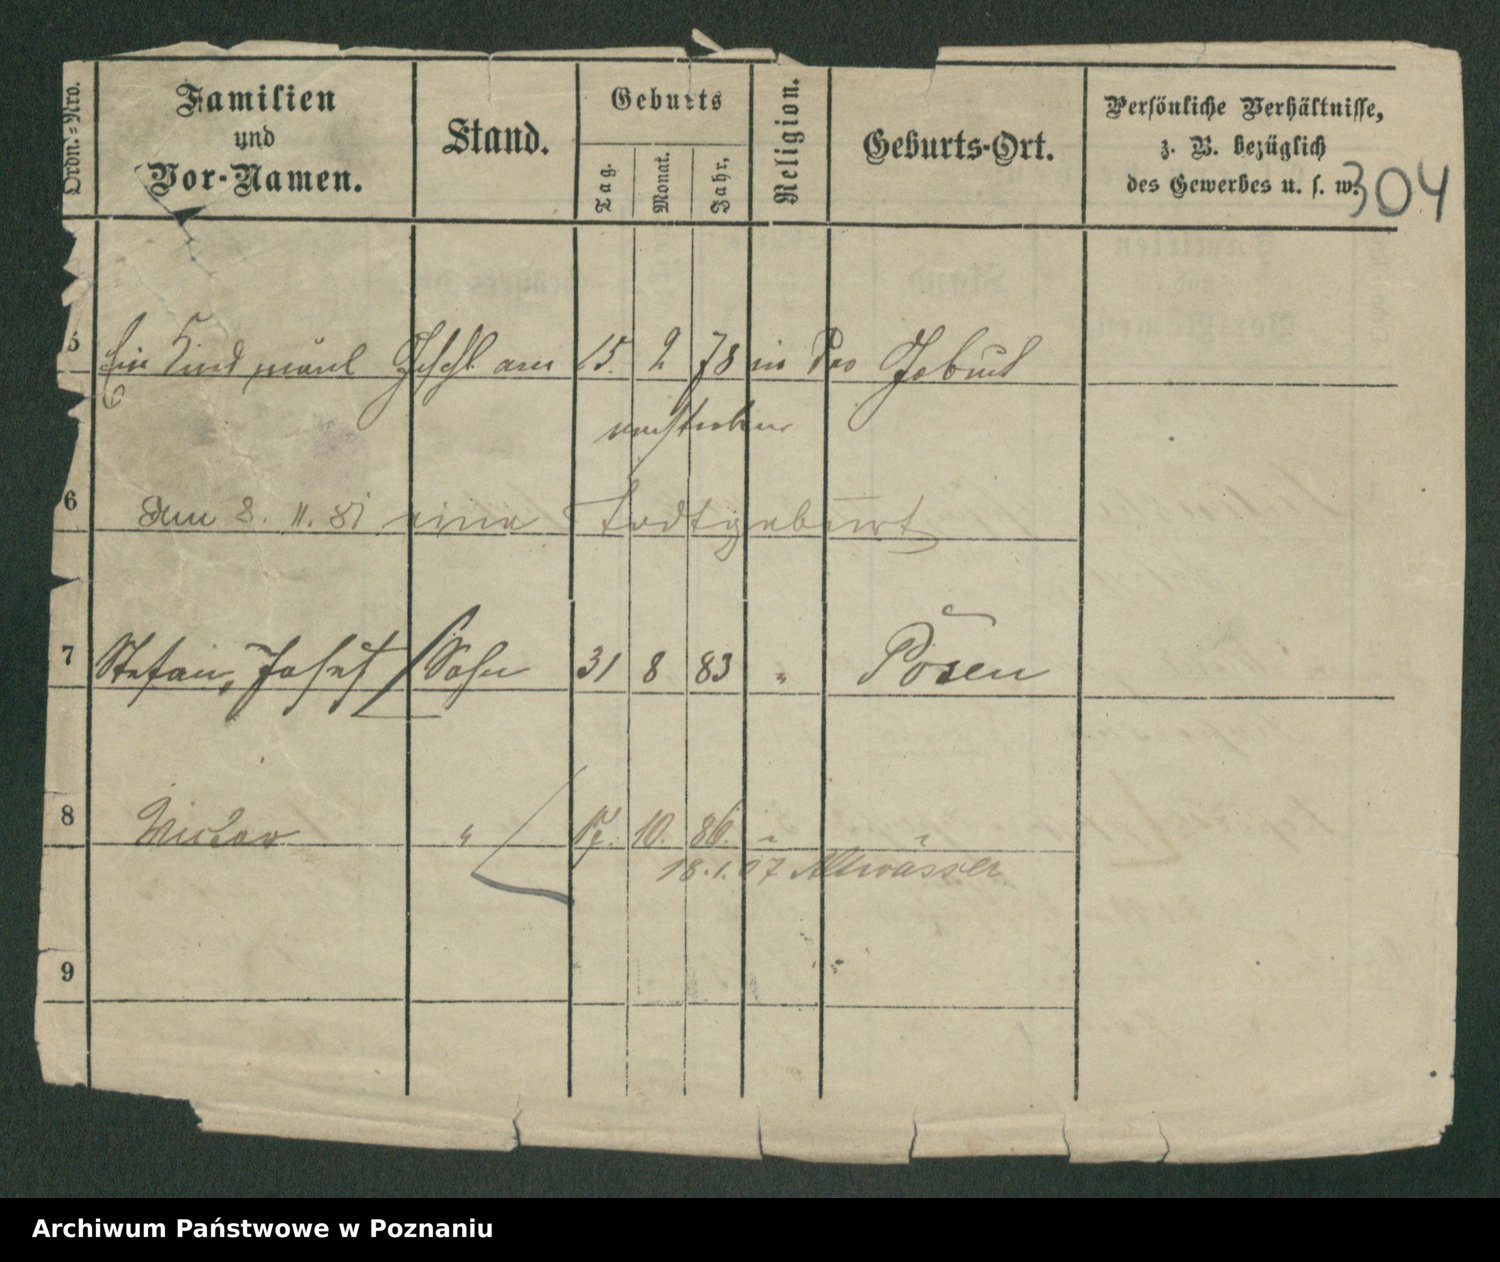 Ordn.-Nro.
Familien
und
Vor-Namen.
Stand.
Geburts
Tag.
Monat.
Jahr.
Religion.
Geburts-Ort.
Persönliche Verhältnisse,
z. B. bezüglich
des Gewerbes u. s. w.
304
5 Ein Kind männl Geschl. am 15. 2 78 in der Geburt
verstorben
6 Den 8. 11. 81 eine Todtgeburt
7 Stefan, Josef Sohn 31 8 83 " Posen
8 " 17. 10. 86. " "
18.1.07 Altwasser
9
Archiwum Państwowe w Poznaniu